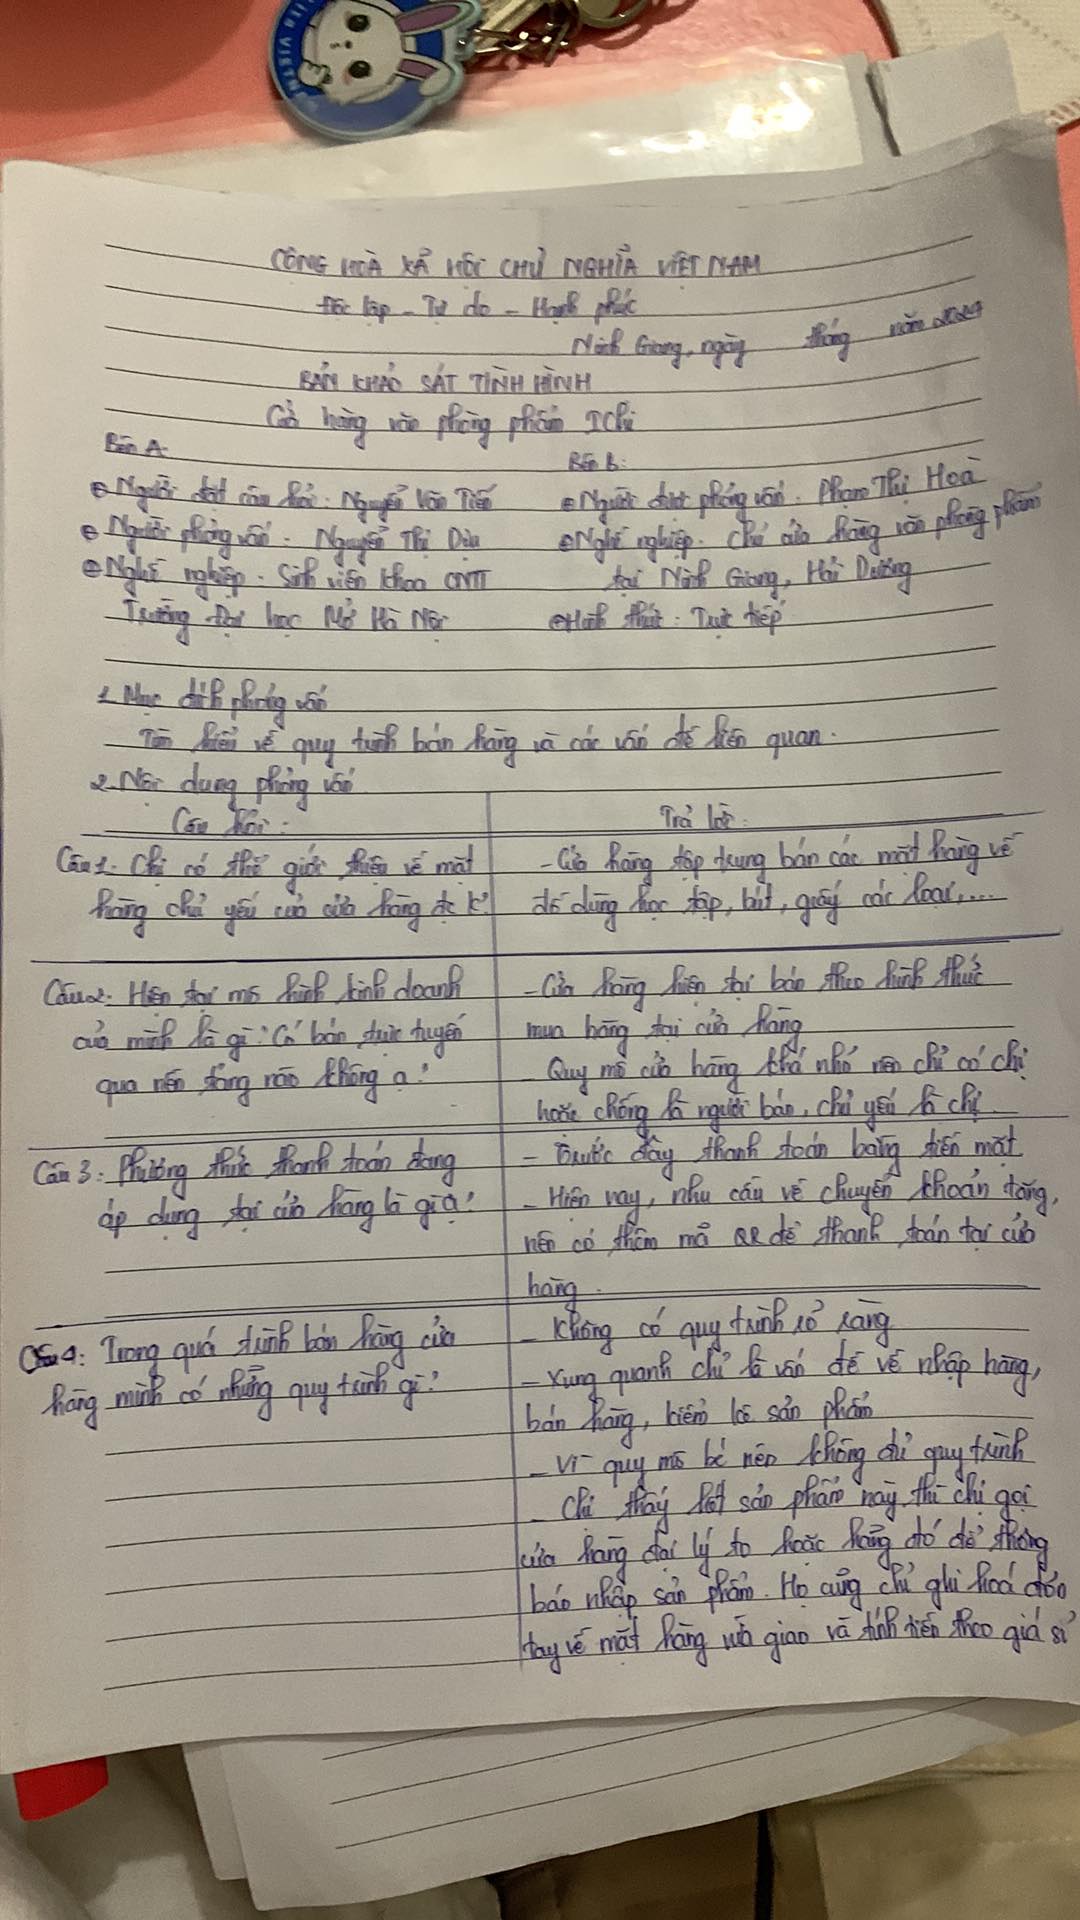 CỘNG HOÀ XÃ HỘI CHỦ NGHĨA VIỆT NAM
Độc lập - Tự do - Hạnh phúc
Ninh Giang, ngày tháng năm 2024
BẢN KHẢO SÁT TÌNH HÌNH
Cửa hàng văn phòng phẩm IChi
Bên A:
Bên B:
Người đặt câu hỏi: Nguyễn Văn Tiến
Người được phỏng vấn: Phạm Thị Hoà
Người phỏng vấn: Nguyễn Thị Dịu
Nghề nghiệp: Chủ cửa hàng văn phòng phẩm
Nghề nghiệp: Sinh viên khoa CNTT
tại Ninh Giang, Hải Dương
Trường Đại học Mở Hà Nội
Hình thức: Trực tiếp
1. Mục đích phỏng vấn
Tìm hiểu về quy trình bán hàng và các vấn đề liên quan.
2. Nội dung phỏng vấn
Câu hỏi:
Trả lời:
Câu 1: Chị có thể giới thiệu về mặt
hàng chủ yếu của cửa hàng đc k?
- Cửa hàng tập trung bán các mặt hàng về
đồ dùng học tập, bút, giấy các loại,...
Câu 2: Hiện tại mô hình kinh doanh
của mình là gì? Có bán trực tuyến
qua nền tảng nào không ạ?
- Cửa hàng hiện tại bán theo hình thức
mua hàng tại cửa hàng
- Quy mô cửa hàng khá nhỏ nên chỉ có chị
hoặc chồng là người bán, chủ yếu là chị.
Câu 3: Phương thức thanh toán đang
áp dụng tại cửa hàng là gì ạ?
- Trước đây thanh toán bằng tiền mặt
- Hiện nay, nhu cầu về chuyển khoản tăng,
nên có thêm mã QR để thanh toán tại cửa
hàng.
Câu 4: Trong quá trình bán hàng cửa
hàng mình có những quy trình gì?
- Không có quy trình rõ ràng
- Xung quanh chỉ là vấn đề về nhập hàng,
bán hàng, kiểm kê sản phẩm
- Vì quy mô bé nên không đủ quy trình
- Chị thấy hết sản phẩm này thì chị gọi
cửa hàng đại lý to hoặc hãng đó để thông
báo nhập sản phẩm. Họ cũng chỉ ghi hoá đơn
tay về mặt hàng giao và tính tiền theo giá sỉ